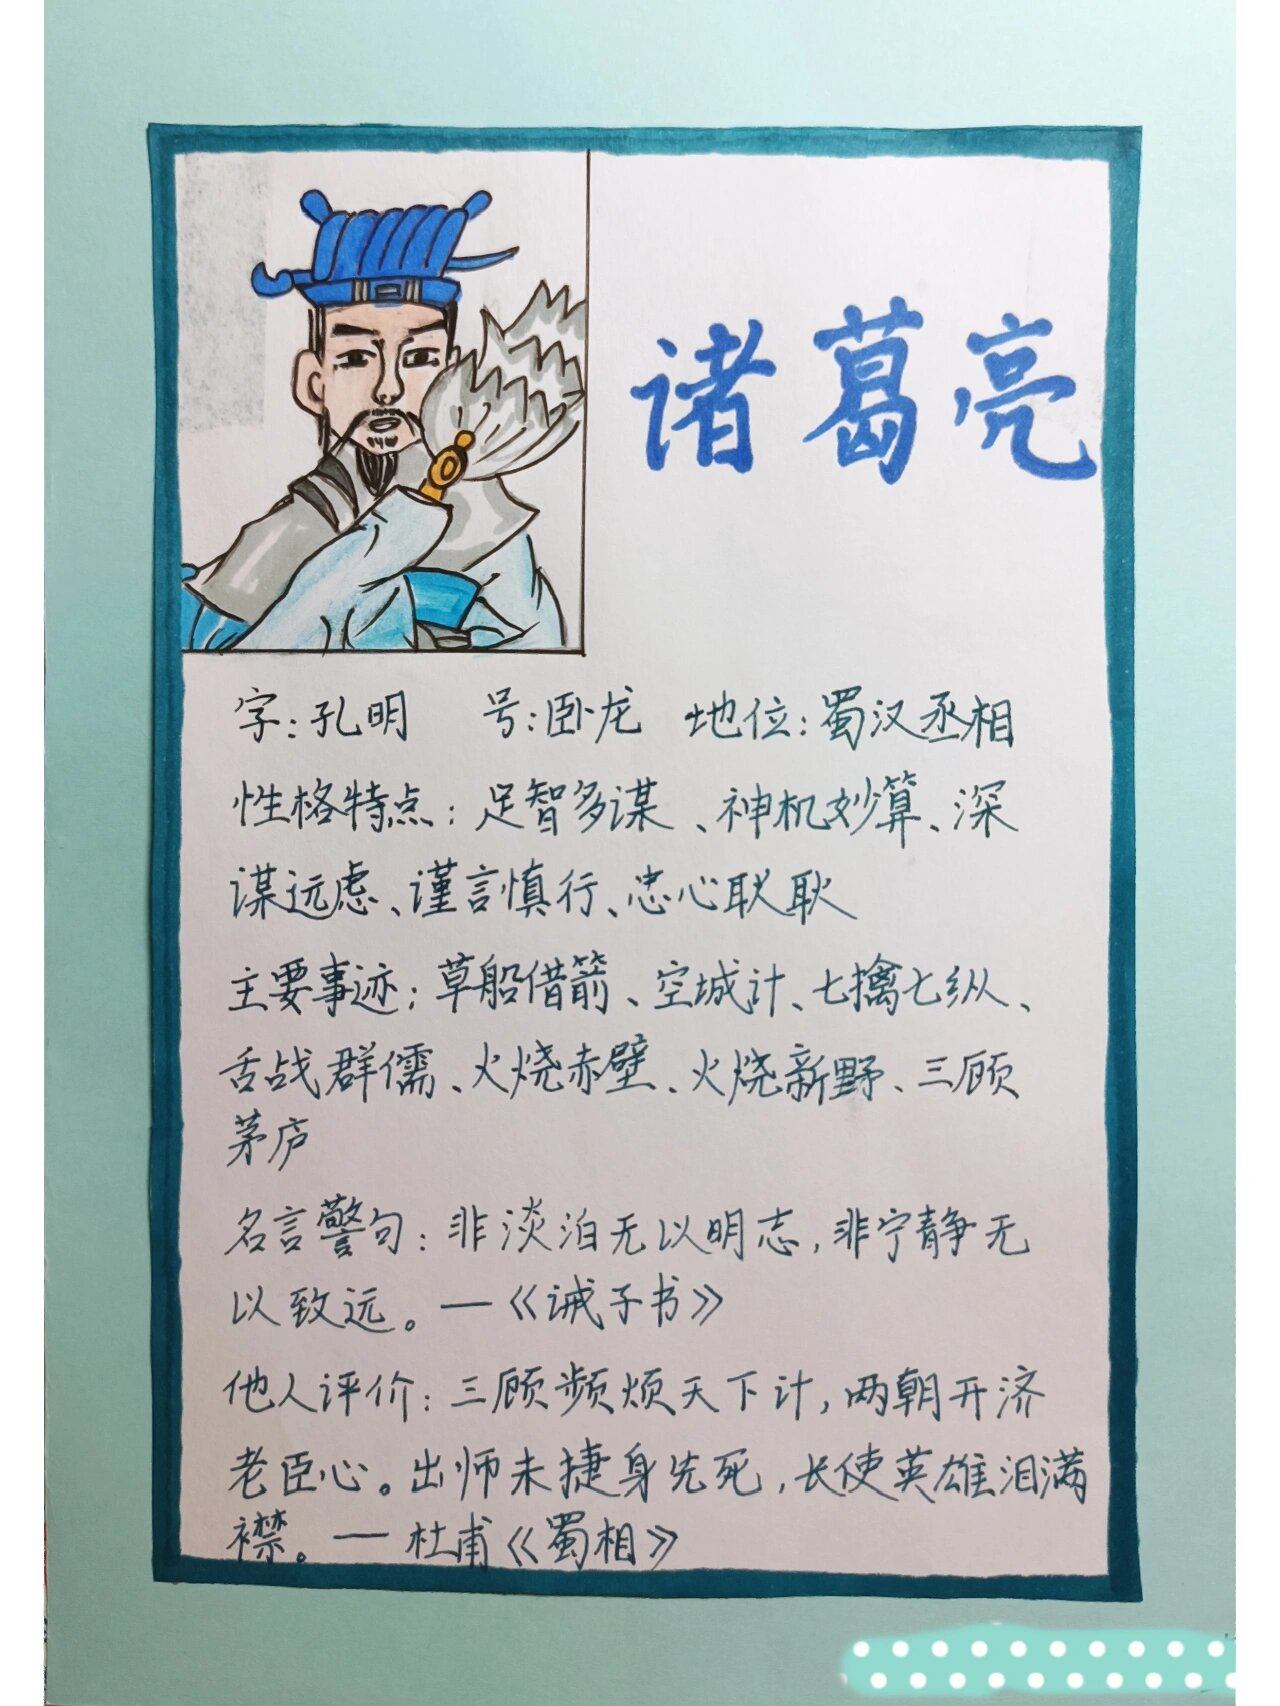 诸葛亮
字：孔明 号：卧龙 地位：蜀汉丞相
性格特点：足智多谋、神机妙算、深
谋远虑、谨言慎行、忠心耿耿
主要事迹：草船借箭、空城计、七擒七纵、
舌战群儒、火烧赤壁、火烧新野、三顾
茅庐
名言警句：非淡泊无以明志，非宁静无
以致远。—《诫子书》
他人评价：三顾频烦天下计，两朝开济
老臣心。出师未捷身先死，长使英雄泪满
襟。—杜甫《蜀相》